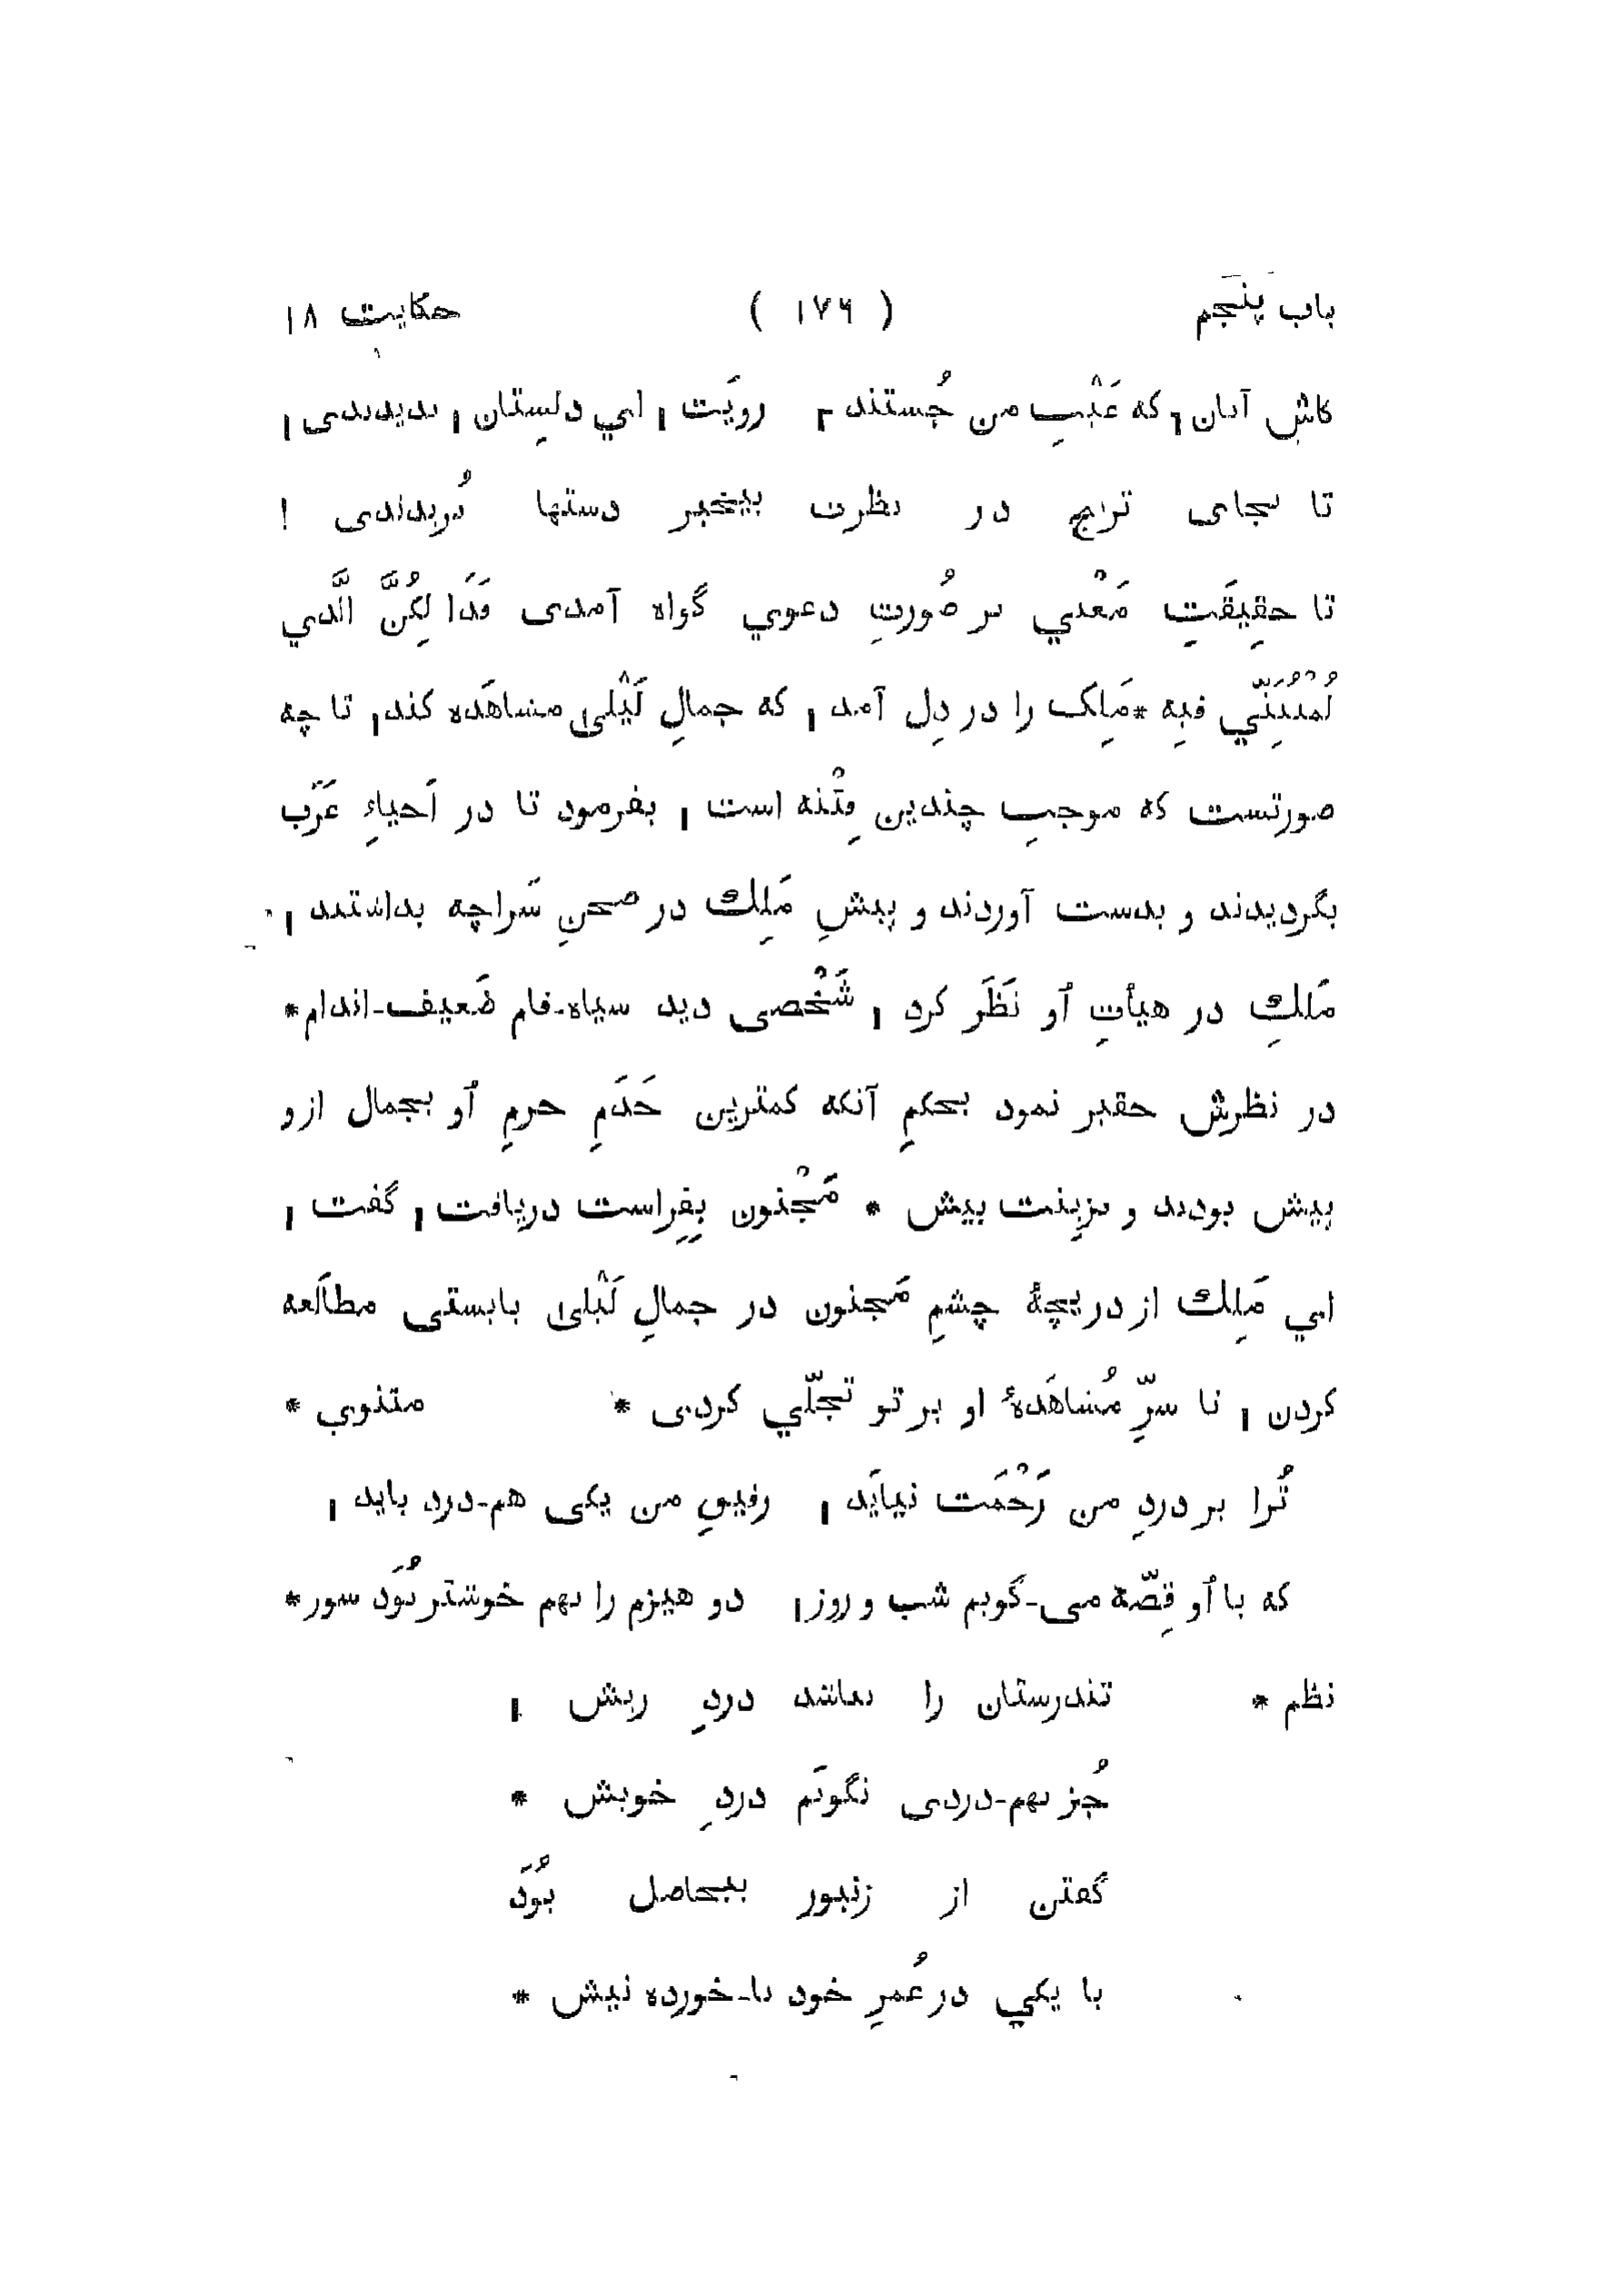 باب پنجم ( ۱۷۶ ) حکایت ۱۸
کاش آنان، که عَیْبِ من جُستند، رویَت، ای دلِستان، بدیدندی،
تا بجای ترنج در نظرت بیخبر دستها بُریدندی !
تا حقِیقَتِ مَعْنی بر صُورتِ دعوی گواه آمدی فَذَا لِکُنَّ الَّذِي
لُمْتُنَّنِي فِیهِ * مَلِک را در دِل آمد، که جمالِ لَیْلی مشاهَده کند، تا چه
صورتست که موجبِ چندین فِتْنه است، بفرمود تا در اَحیاءِ عَرَب
بگردیدند و بدست آوردند و پیشِ مَلِك در صحنِ سَراچه بداشتند،
مَلِك در هیأتِ اُو نَظَر کرد، شَخْصی دید سیاه-فام ضَعیف-اندام *
در نظرش حقیر نمود بحکمِ آنکه کمترین خَدَمِ حرمِ اُو بجمال ازو
پیش بودند و بزینت بیش * مَجْنون بِفِراست دریافت، گفت،
ای مَلِك از دریچهٔ چشمِ مَجنون در جمالِ لَیْلی بایستی مطالَعه
کردن، تا سرِّ مُشاهَدهٔ او بر تو تجلّی کردی * مثنوی *
تُرا بر دردِ من رَحْمَت نیایَد، رفیقِ من یکی هم-درد باید،
که با اُو قِصّه می-گویم شب و روز، دو هیزم را بهم خوشتر بُوَد سوز *
نظم * تندرستان را نباشد دردِ ریش،
جُز بهم-دردی نگویَم دردِ خویش *
گفتن از زنبور بیحاصل بُوَد
با یکی در عُمرِ خود نا-خورده نیش *